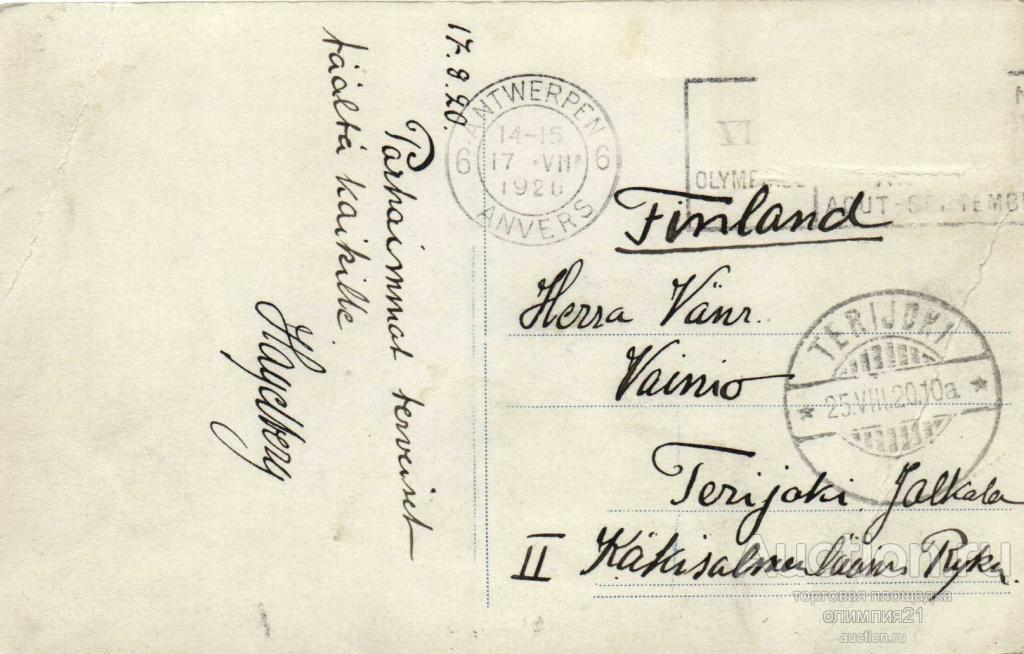 17.8.20.
Parhaimmat terveiset
täältä kaikille.
Hagelberg
ANTWERPEN
6 14-15 6
17 VIII
1920
ANVERS
VI
OLYMP
AOUT-SEPTEMB
Finland
Herra Vänr.
Vainio
TERIJOKI
25.VIII.20.10a
Terijoki Jalkala
II Käkisalmen
Auction.ru
торговая площадка
олимпия21
auction.ru